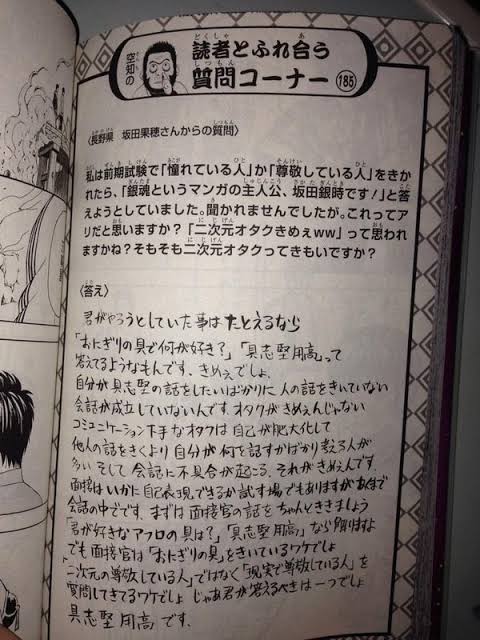 空知の
読者とふれ合う
質問コーナー
185
〈長野県 坂田果穂さんからの質問〉
私は前期試験で「憧れている人」か「尊敬している人」をきか
れたら、「銀魂というマンガの主人公、坂田銀時です!」と答
えようとしていました。聞かれませんでしたが。これってア
リだと思いますか?「二次元オタクきめぇww」って思われ
ますかね?そもそも二次元オタクってきもいですか?
〈答え〉
君がやろうとしていた事はたとえるなら
「おにぎりの具で何が好き?」「具志堅用高」って
答えてるようなもんです。きめぇでしょ。
自分が具志堅の話をしたいばかりに人の話をきいていない
会話が成立していないんです。オタクがきめぇんじゃない
コミュニケーション下手なオタクは自己が肥大化して
他人の話をきくより自分が何を話すかばかり考える人が
多い そして会話に不具合が起こる。それがきめぇんです。
面接はいかに自己表現できるか試す場でもありますがあくまで
会話の中でです。まずは面接官の話をちゃんとききましょう
「君が好きなアフロの具は?」「具志堅用高!」なら
でも面接官は「おにぎりの具」をきいているワケでしょ
「二次元の尊敬している人」ではなく「現実で尊敬している人」を
質問してきてるワケでしょ じゃあ君が答えるべきは一つでしょ
具志堅用高です。